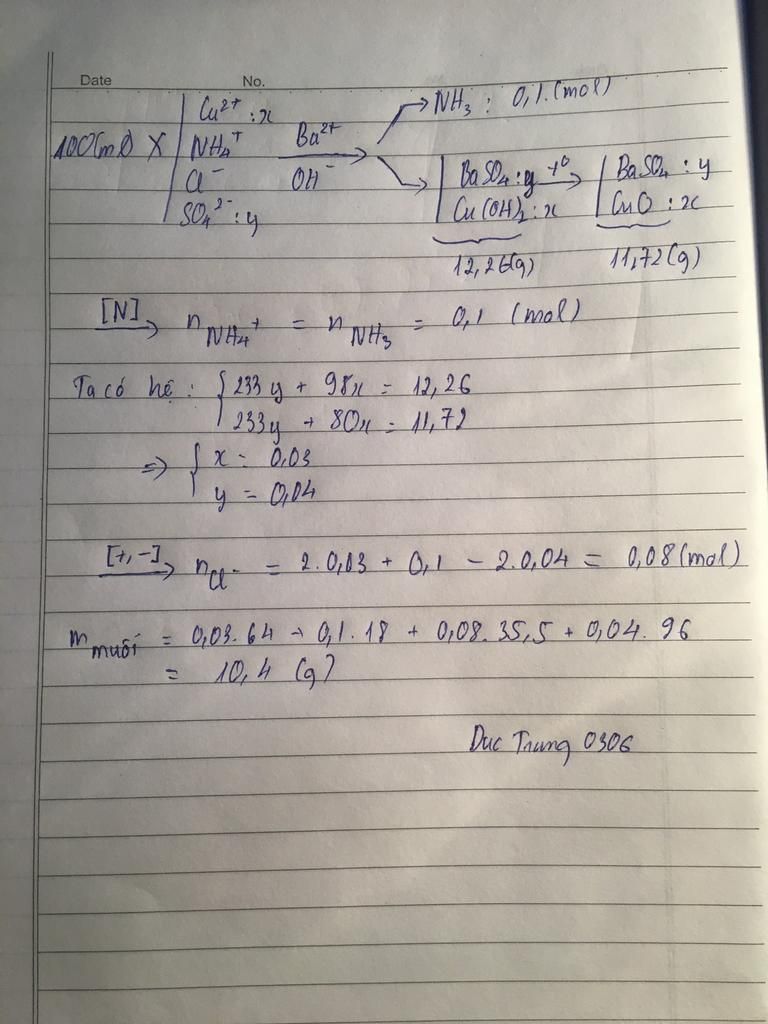 Date No.
100(ml) X
Cu²⁺ : x
NH₄⁺
Cl⁻
SO₄²⁻ : y
Ba²⁺
OH⁻
NH₃ : 0,1 (mol)
BaSO₄ : y
Cu(OH)₂ : x
t⁰
BaSO₄ : y
CuO : x
12,26(g)
11,72(g)
[N] n NH₄⁺ = n NH₃ = 0,1 (mol)
Ta có hệ : { 233y + 98x = 12,26
233y + 80x = 11,72
=> { x = 0,03
y = 0,04
[+,-] n Cl⁻ = 2.0,03 + 0,1 - 2.0,04 = 0,08 (mol)
m muối = 0,03.64 + 0,1.18 + 0,08.35,5 + 0,04.96
= 10,4 (g)
Duc Trung 0306